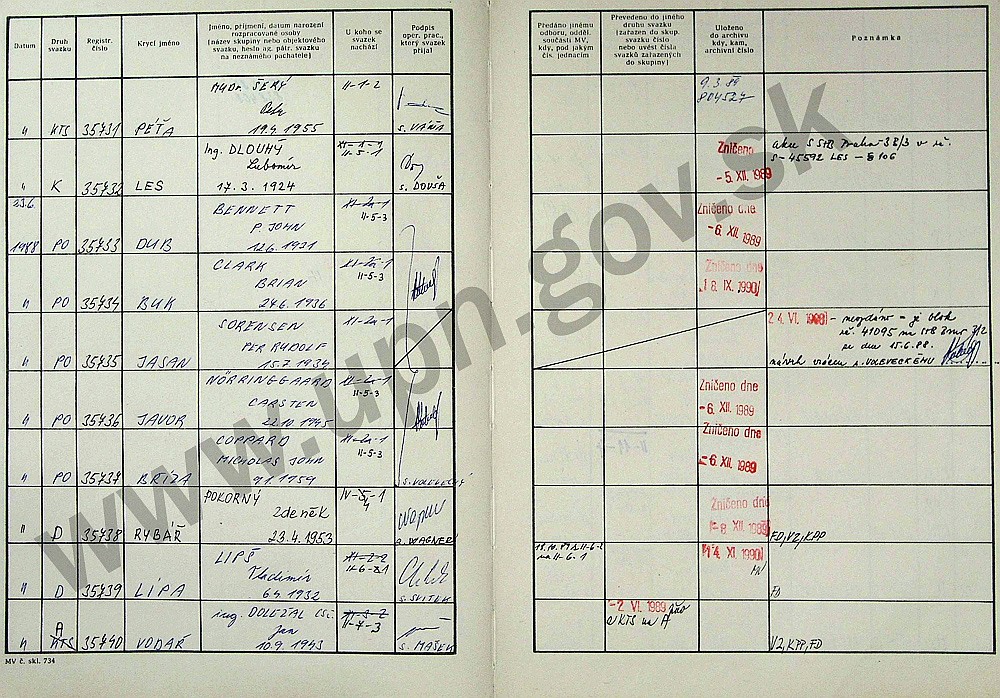 Datum
Druh svazku
Registr. číslo
Krycí jméno
Jméno, příjmení, datum narození
rozpracované osoby
(název skupiny nebo objektového
svazku, heslo ag. pátr. svazku
na neznámého pachatele)
U koho se
svazek
nachází
Podpis
oper. prac.,
který svazek
přijal
Předáno jinému
odboru, odděl.
součásti MV,
kdy, pod jakým
čís. jednacím
Převedeno do jiného
druhu svazku
(zařazen do skup.
svazku číslo
nebo uvést čísla
svazků zařazených
do skupiny)
Uloženo
do archivu
kdy, kam,
archivní číslo
Poznámka
MUDr. ŠERÝ
Petr
19.4.1955
" KTS 35731 PÉŤA
II-1-2
s. VÁŇA
9.3.89
804527
Ing. DLOUHÝ
Lubomír
17.3.1924
" K 35732 LES
II-5-1
s. DOUŠA
Zničeno
-5. XII. 1989
S-45592 LES
23.6.
1988 PO 35733 DUB
BENNETT
P. JOHN
12.6.1931
XI-2a-1
II-5-3
Zničeno dne
-6. XII. 1989
CLARK
BRIAN
24.6.1936
" PO 35734 BUK
XI-2a-1
II-5-3
Zničeno dne
18. IX. 1990
SORENSEN
PER RUDOLF
15.7.1934
" PO 35735 JASAN
XI-2a-1
2 4. VI. 1988 - neodáno = je blok
41095
15.6.88.
NÖRRINGGAARD
CARSTEN
22.10.1945
" PO 35736 JAVOR
XI-2a-1
II-5-3
Zničeno dne
-6. XII. 1989
COPPARD
NICHOLAS JOHN
9.1.1959
" PO 35737 BŘÍZA
XI-2a-1
II-5-3
s. VOLEVECKÝ
Zničeno dne
-6. XII. 1989
POKORNÝ
Zdeněk
23.4.1953
" D 35738 RYBÁŘ
IV-5-1
4
s. WAGNER
Zničeno dne
-8. XII. 1989
FD, VZ, KPP
LIPŠ
Vladimír
6.4.1932
" D 35739 LÍPA
s. SVITEK
na II-6-1
14. XI. 1990
FD
ing. DOLEŽAL CSc.
Jan
10.9.1943
A
" KTS 35740 VODÁŘ
XI-3-2
II-7-3
s. MAŠEK
-2. VI. 1989
z KTS na A
VZ, KPP, FD
MV č. skl. 734
www.upn.gov.sk